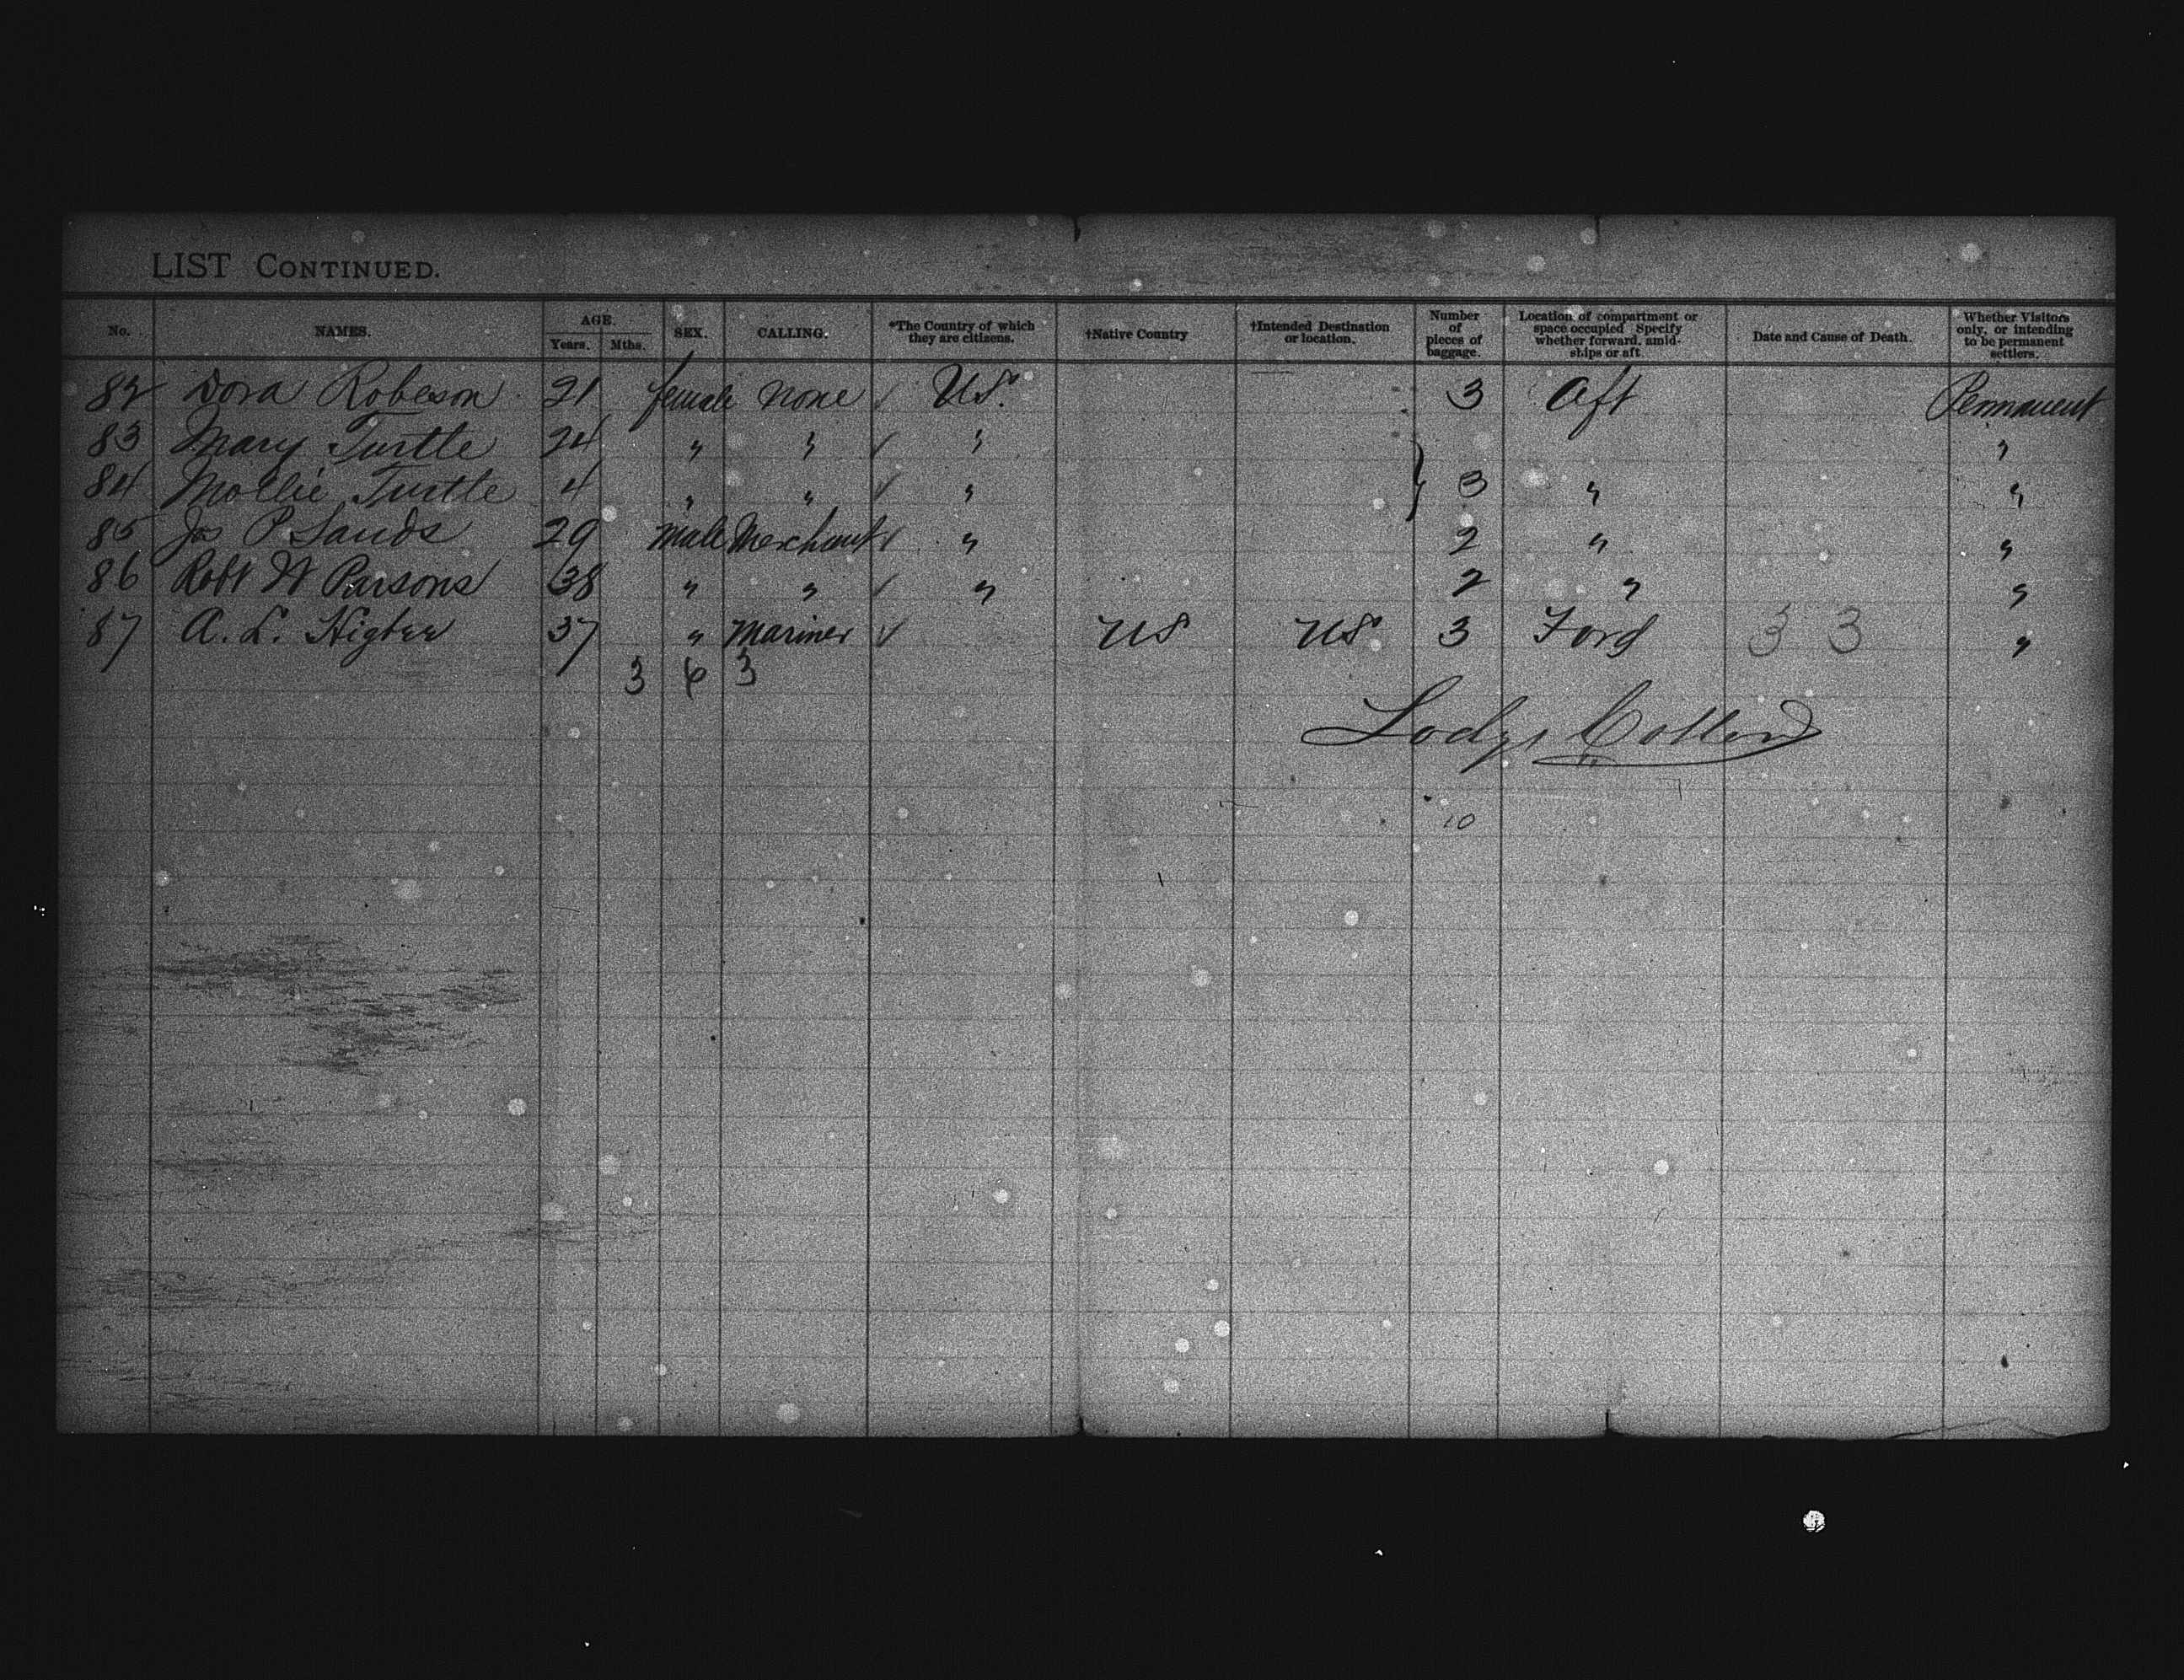 LIST CONTINUED.
No. NAMES. AGE. Years. Mths. SEX. CALLING. *The Country of which they are citizens. †Native Country †Intended Destination or location. Number of pieces of baggage. Location of compartment or space occupied Specify whether forward, amid-ships or aft Date and Cause of Death. Whether Visitors only, or intending to be permanent settlers.
82 Dora Robeson 21 female none ✓ US. 3 Aft Permanent
83 Mary Turtle 24 " " ✓ " "
84 Mollie Turtle 4 " " ✓ " } 3 " "
85 Jos P Sands 29 male Merchant ✓ " 2 " "
86 Robt W Parsons 38 " " ✓ " 2 " "
87 A. L. Higbee 37 " Mariner ✓ US US 3 Ford 3 3 "
3 6 3
10